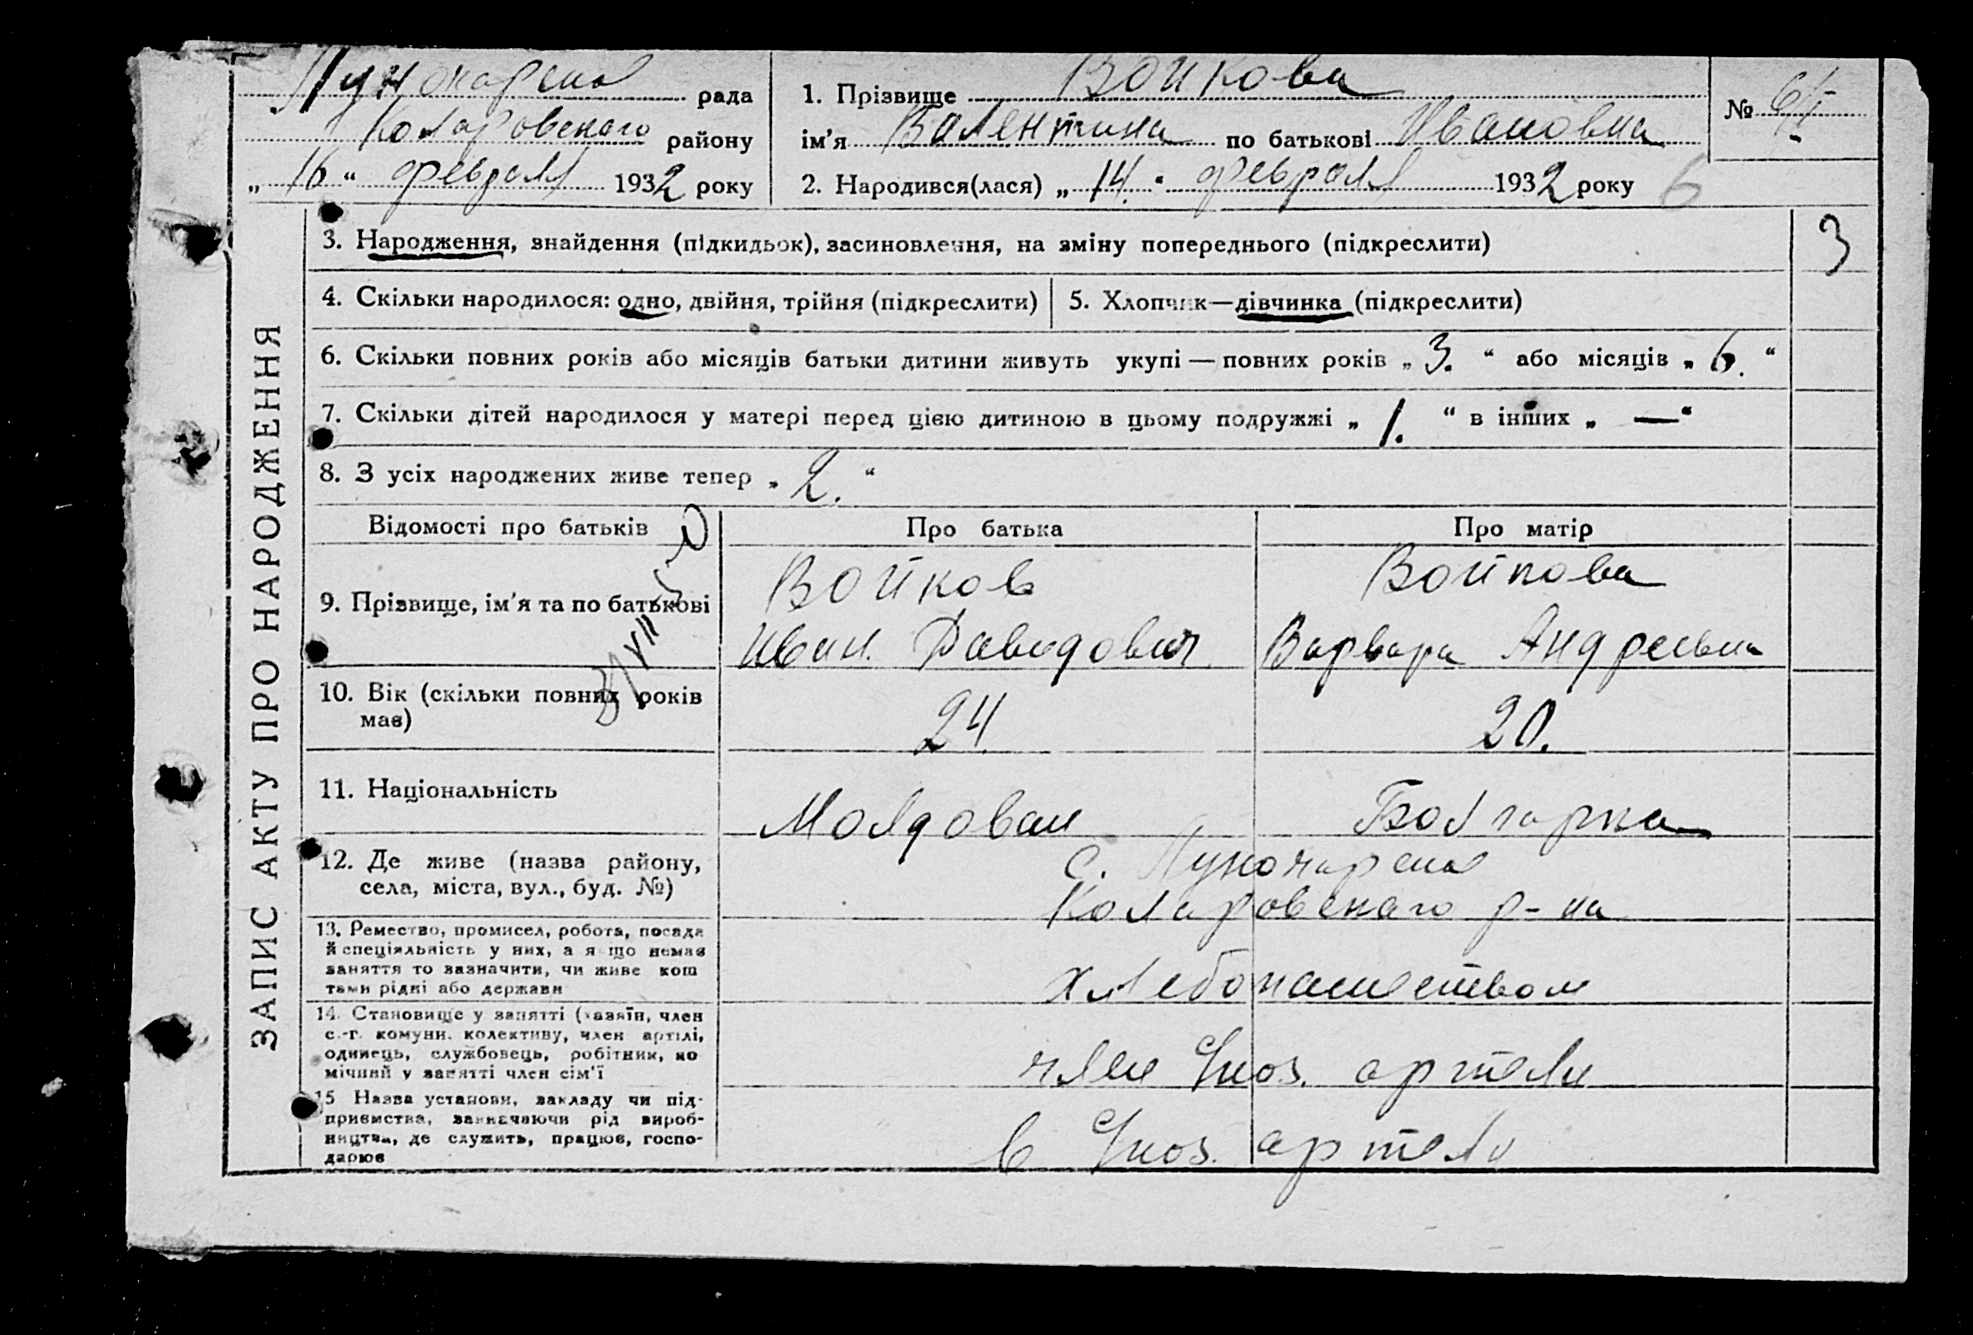 Луначарска рада
Коларовскаго району
„ 16 “ февраля 1932 року
1. Прізвище Войкова
ім’я Валентина по батькові Ивановна
2. Народився(лася) „ 14. “ февраля 1932 року 6
№
3. Народження, знайдення (підкидьок), засиновлення, на зміну попереднього (підкреслити)
3
4. Скільки народилося: одно, двійня, трійня (підкреслити)
5. Хлопчик—дівчинка (підкреслити)
6. Скільки повних років або місяців батьки дитини живуть укупі — повних років „ 3. “ або місяців „ 6. “
7. Скільки дітей народилося у матері перед цією дитиною в цьому подружжі „ 1. “ в інших „ — “
8. З усіх народжених живе тепер „ 2. “
ЗАПИС АКТУ ПРО НАРОДЖЕННЯ
Відомості про батьків
Про батька
Про матір
9. Прізвище, ім’я та по батькові
Войков
Иван. Давидович
Войкова
Варвара Андреевна
10. Вік (скільки повних років
має)
24
20.
11. Національність
Молдован
Болгарка
12. Де живе (назва району,
села, міста, вул., буд. №)
с. Луначарска
Коларовскаго р-на
13. Ремество, промисел, робота, посада
й спеціяльність у них, а якщо немає
заняття то зазначити, чи живе кош
тами рідні або держави
хлебопашеством
14. Становище у занятті (хазяїн, член
с.-г. комуни, колективу, член артілі,
одинець, службовець, робітник, по
мічний у занятті член сім’ї
член артели
15 Назва установи, закладу чи під-
приємства, зазначаючи рід вироб-
ництва, де служить, працює, госпо-
дарює
в артели